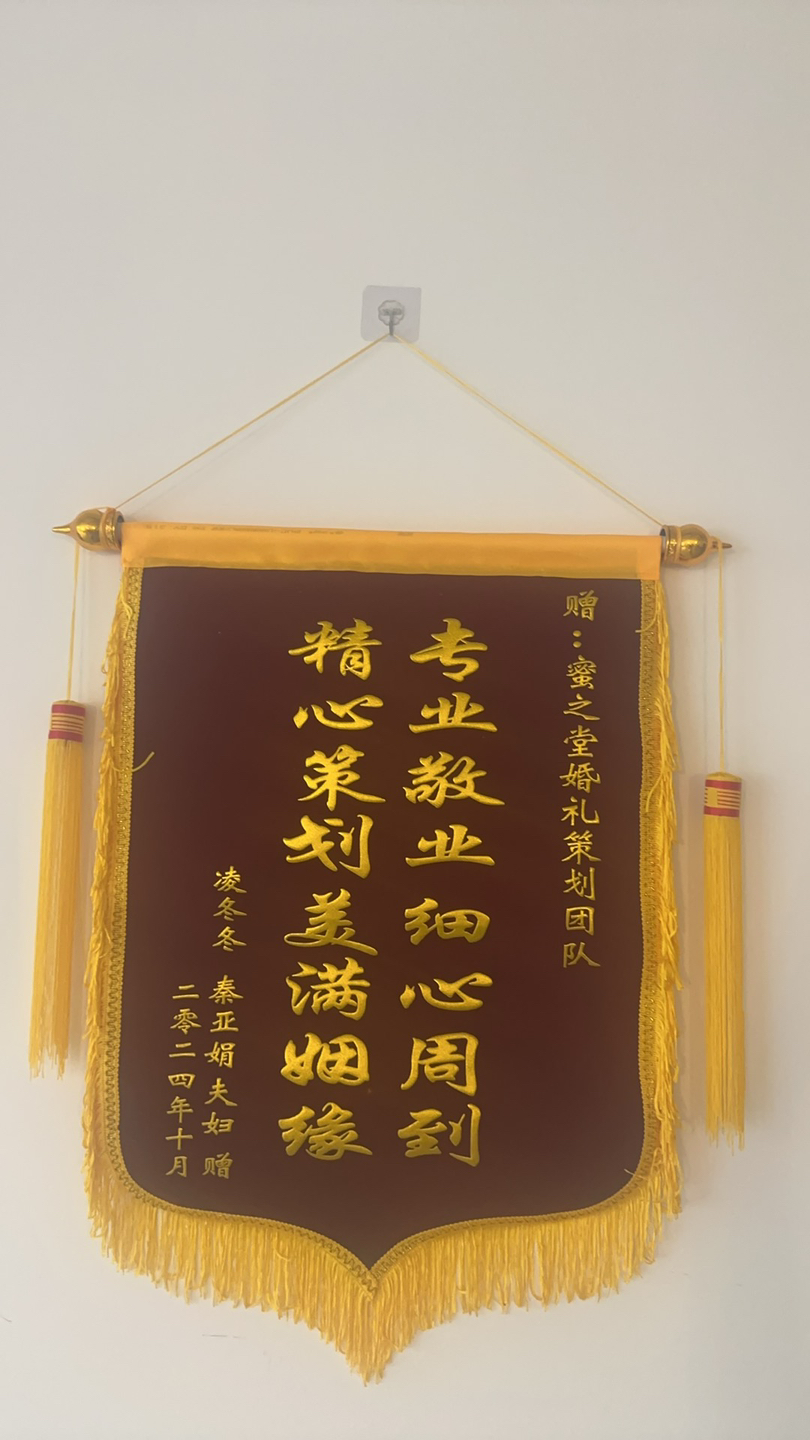 赠：蜜之堂婚礼策划团队
专业敬业细心周到
精心策划美满姻缘
凌冬冬 秦亚娟夫妇 赠
二零二四年十月